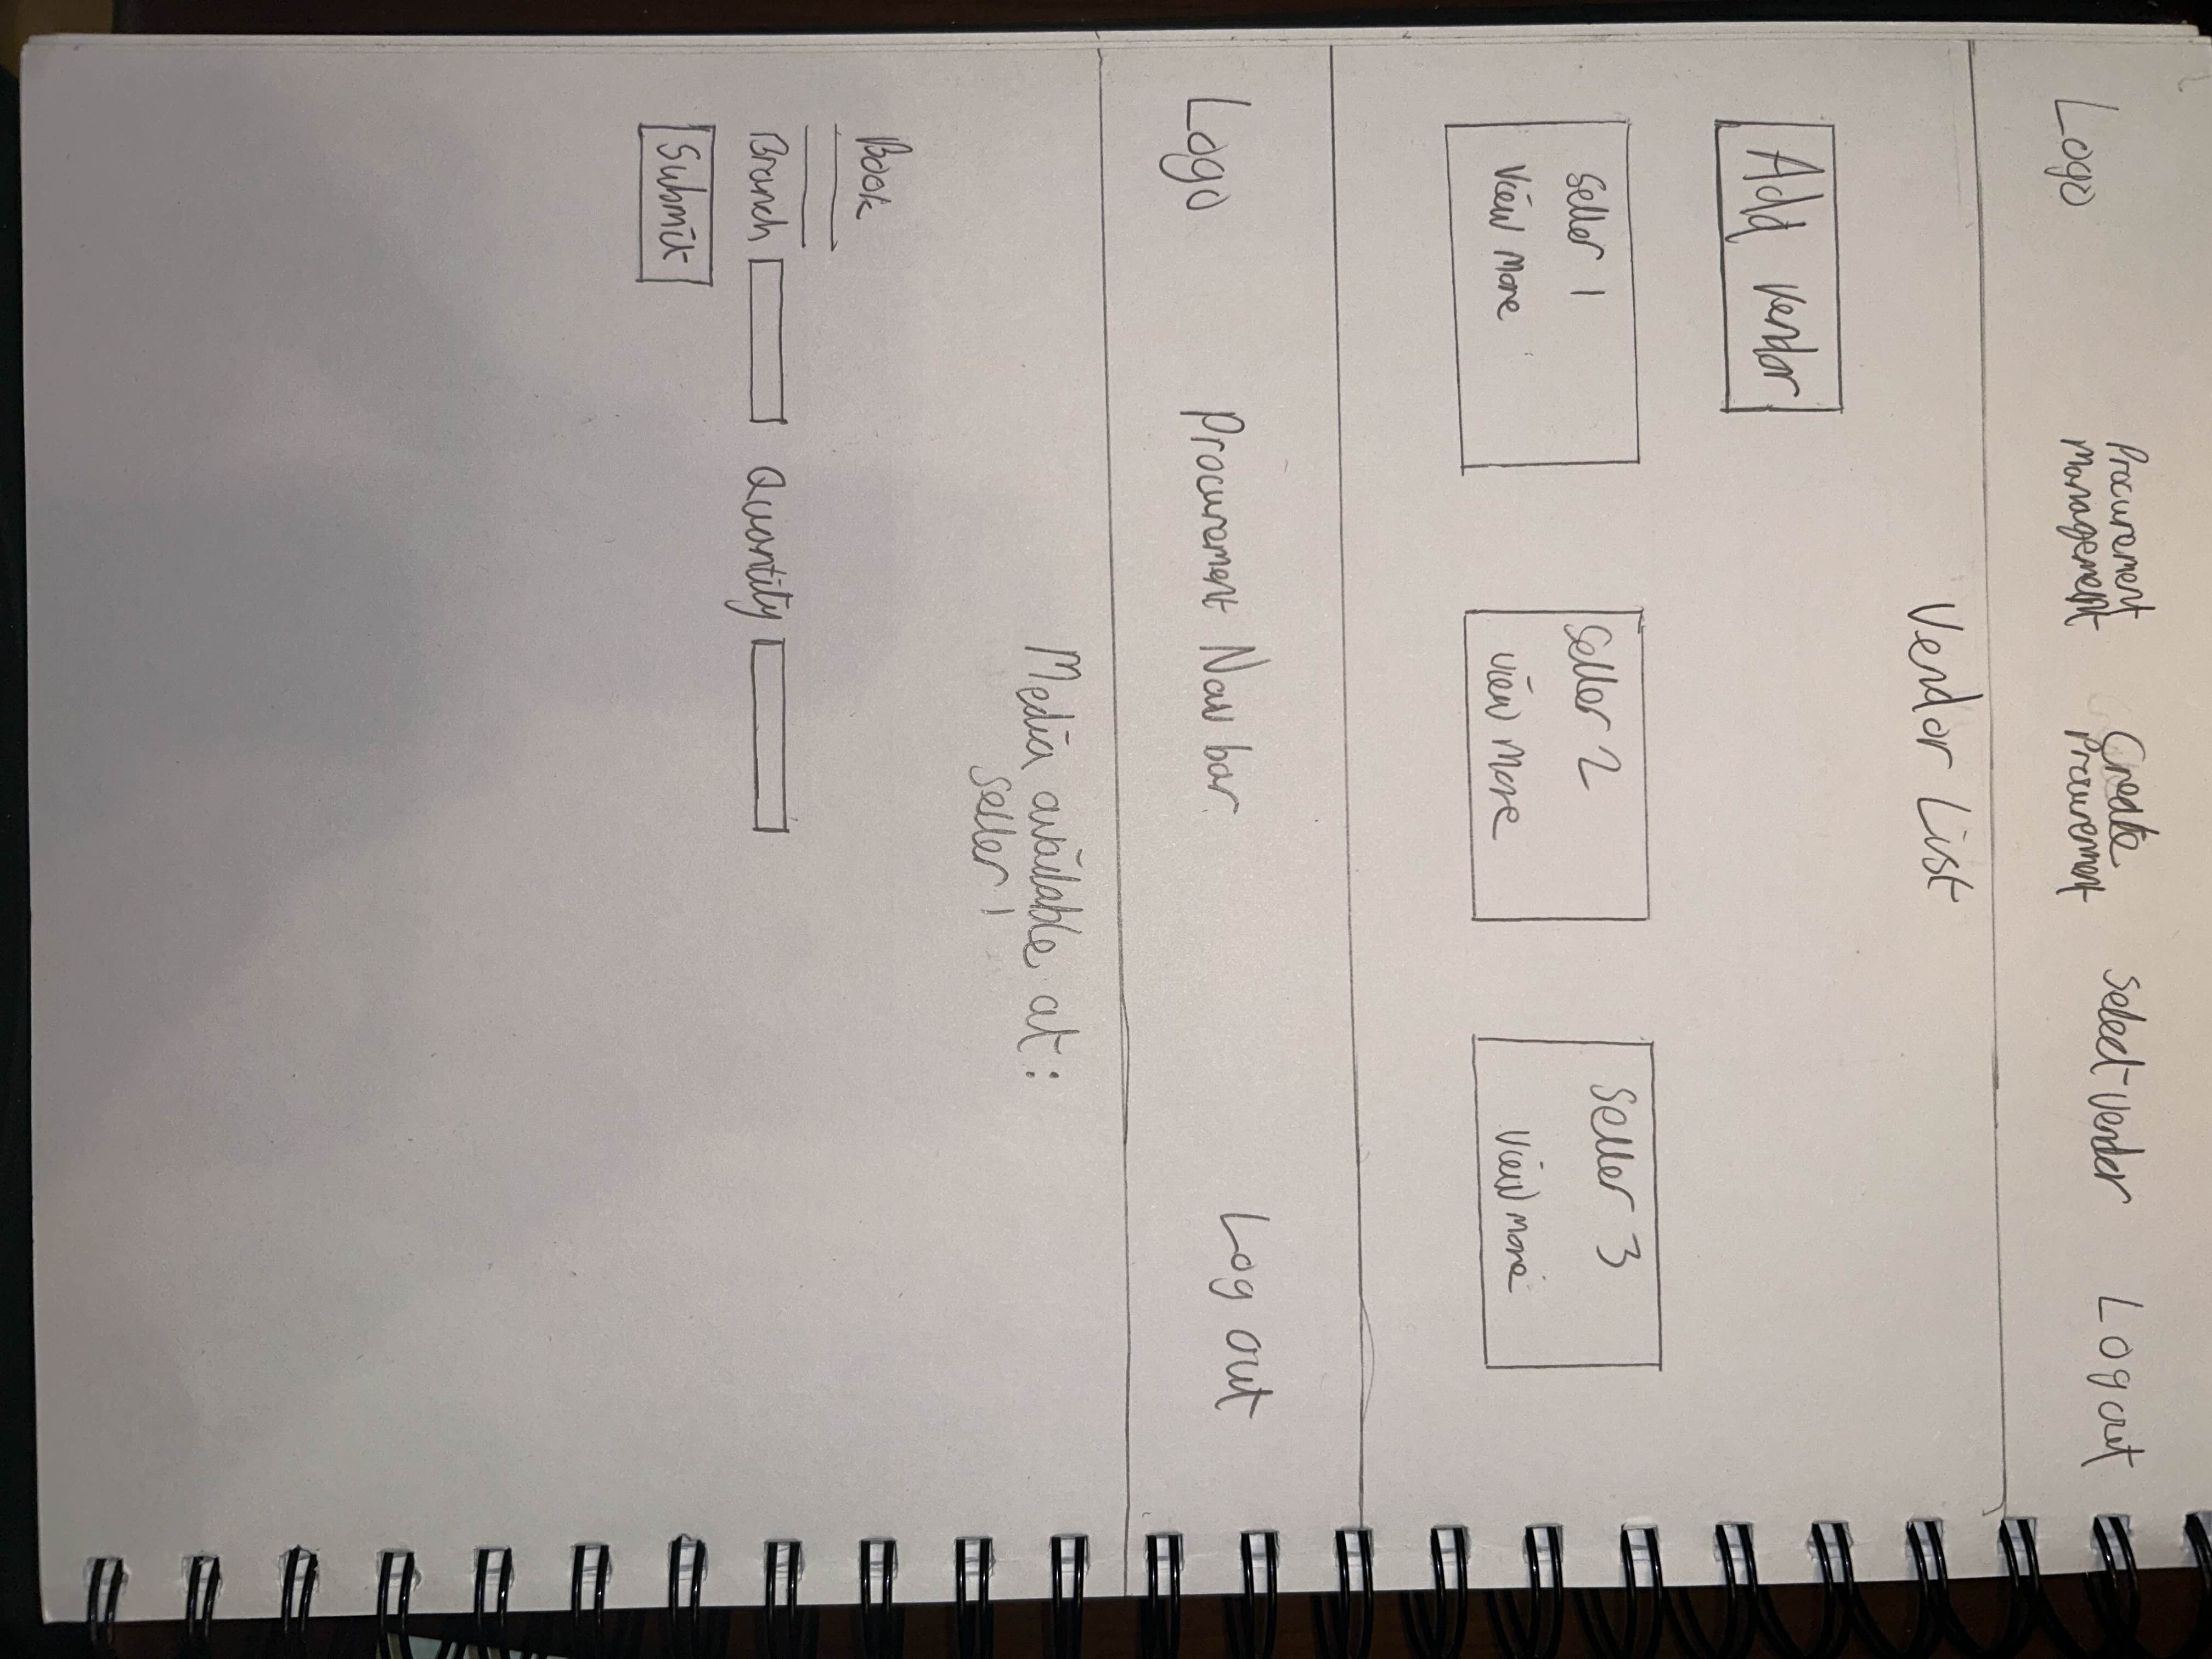 Logo
Procurement
Management
Create
Procurement
Select Vendor
Logout
Vendor List
Add Vendor
Seller 1
View More
Seller 2
View More
Seller 3
View More
Logo
Procurement Nav bar
Log out
Media available at:
Seller 1
Book
Branch
Quantity
Submit